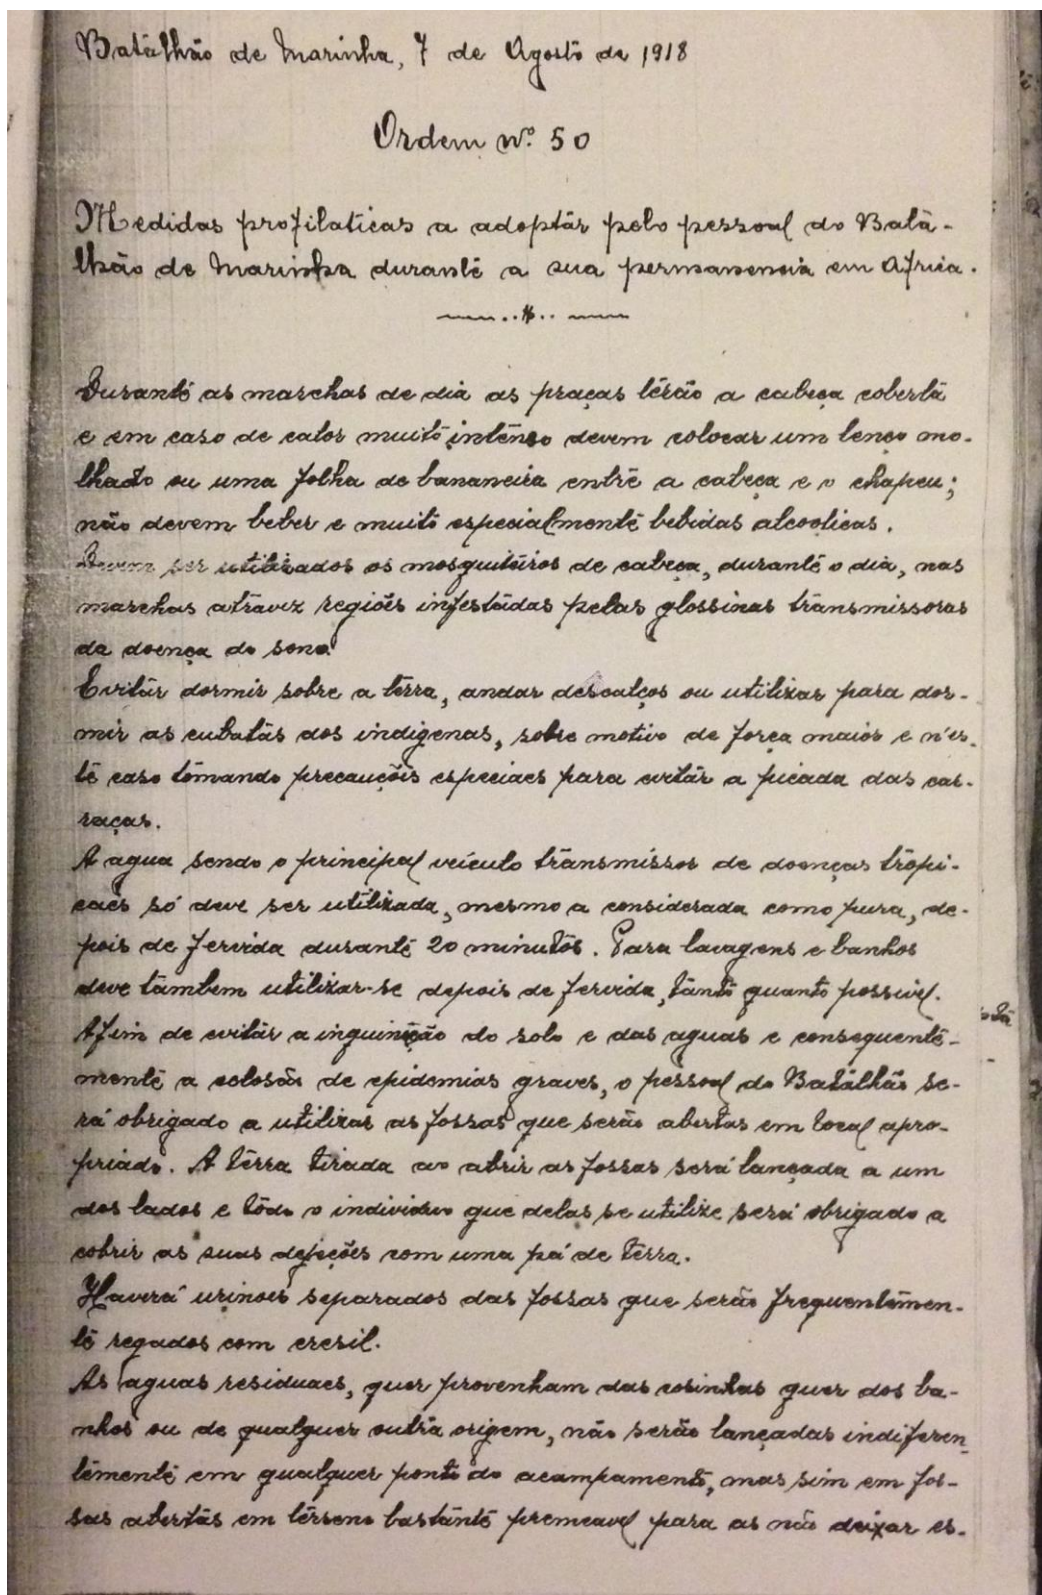 Batalhão de Marinha, 7 de Agosto de 1918
Ordem Nº. 50
Medidas profilaticas a adoptar pelo pessoal do Bata-
lhão de Marinha durante a sua permanencia em Africa.
Durante as marchas de dia as praças terão a cabeça coberta
e em caso de calor muito intenso devem colocar um lenço mo-
lhado ou uma folha de bananeira entre a cabeça e o chapeu;
não devem beber e muito especialmente bebidas alcoolicas.
Devem ser utilizados os mosquiteiros de cabeça, durante o dia, nas
marchas atravez regiões infestadas pelas glossinas transmissoras
da doença do sono
Evitar dormir sobre a terra, andar descalços ou utilizar para dor-
mir as cubatas dos indigenas, sobre motivo de força maior e n'es-
te caso tomando precauções especiaes para evitar a picada das car-
raças.
A agua sendo o principal veículo transmissor de doenças tropi-
caes só deve ser utilizada, mesmo a considerada como pura, de-
pois de fervida durante 20 minutos. Para lavagens e banhos
deve tambem utilizar-se depois de fervida, tanto quanto possivel.
Afim de evitar a inquinição do solo e das aguas e consequente-
mente a eclosão de epidemias graves, o pessoal do Batalhão se-
rá obrigado a utilizar as fossas que serão abertas em local apro-
priado. A terra tirada ao abrir as fossas será lançada a um
dos lados e todo o individuo que delas se utilize será obrigado a
cobrir as suas dejeções com uma pá de terra.
Haverá urinoes separados das fossas que serão frequentemen-
te regados com cresil.
As aguas residuaes, quer provenham das cosinhas quer dos ba-
nhos ou de qualquer outra origem, não serão lançadas indiferen-
temente em qualquer ponto do acampamento, mas sim em fos-
sas abertas em terreno bastante premeavel para as não deixar es-